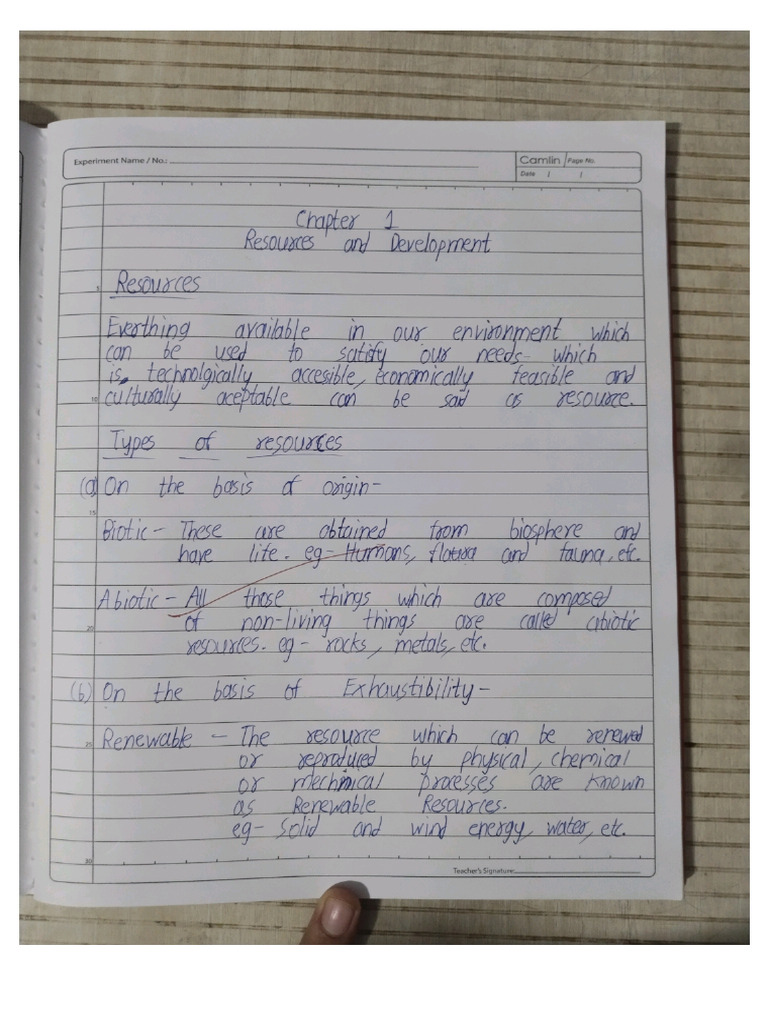 Experiment Name / No.:
Camlin Page No.
Date / /
Chapter 1
Resources and Development
5
Resources
Everthing available in our environment which
can be used to satify our needs which
is technolgically accesible, economically feasible and
10
culturally aceptable can be said as resource.
Types of resources
(a) On the basis of origin-
15
Biotic - These are obtained from biosphere and
have life. eg- Humans, and fauna, etc.
Abiotic - All those things which are composed
20
of non-living things are called abiotic
resources. eg - rocks, metals, etc.
(b) On the basis of Exhaustibility -
25
Renewable - The resource which can be renewed
or reproduced by physical, chemical
or mechnical processes are known
as Renewable Resources.
eg- Solid and wind energy, water, etc.
30
Teacher's Signature: